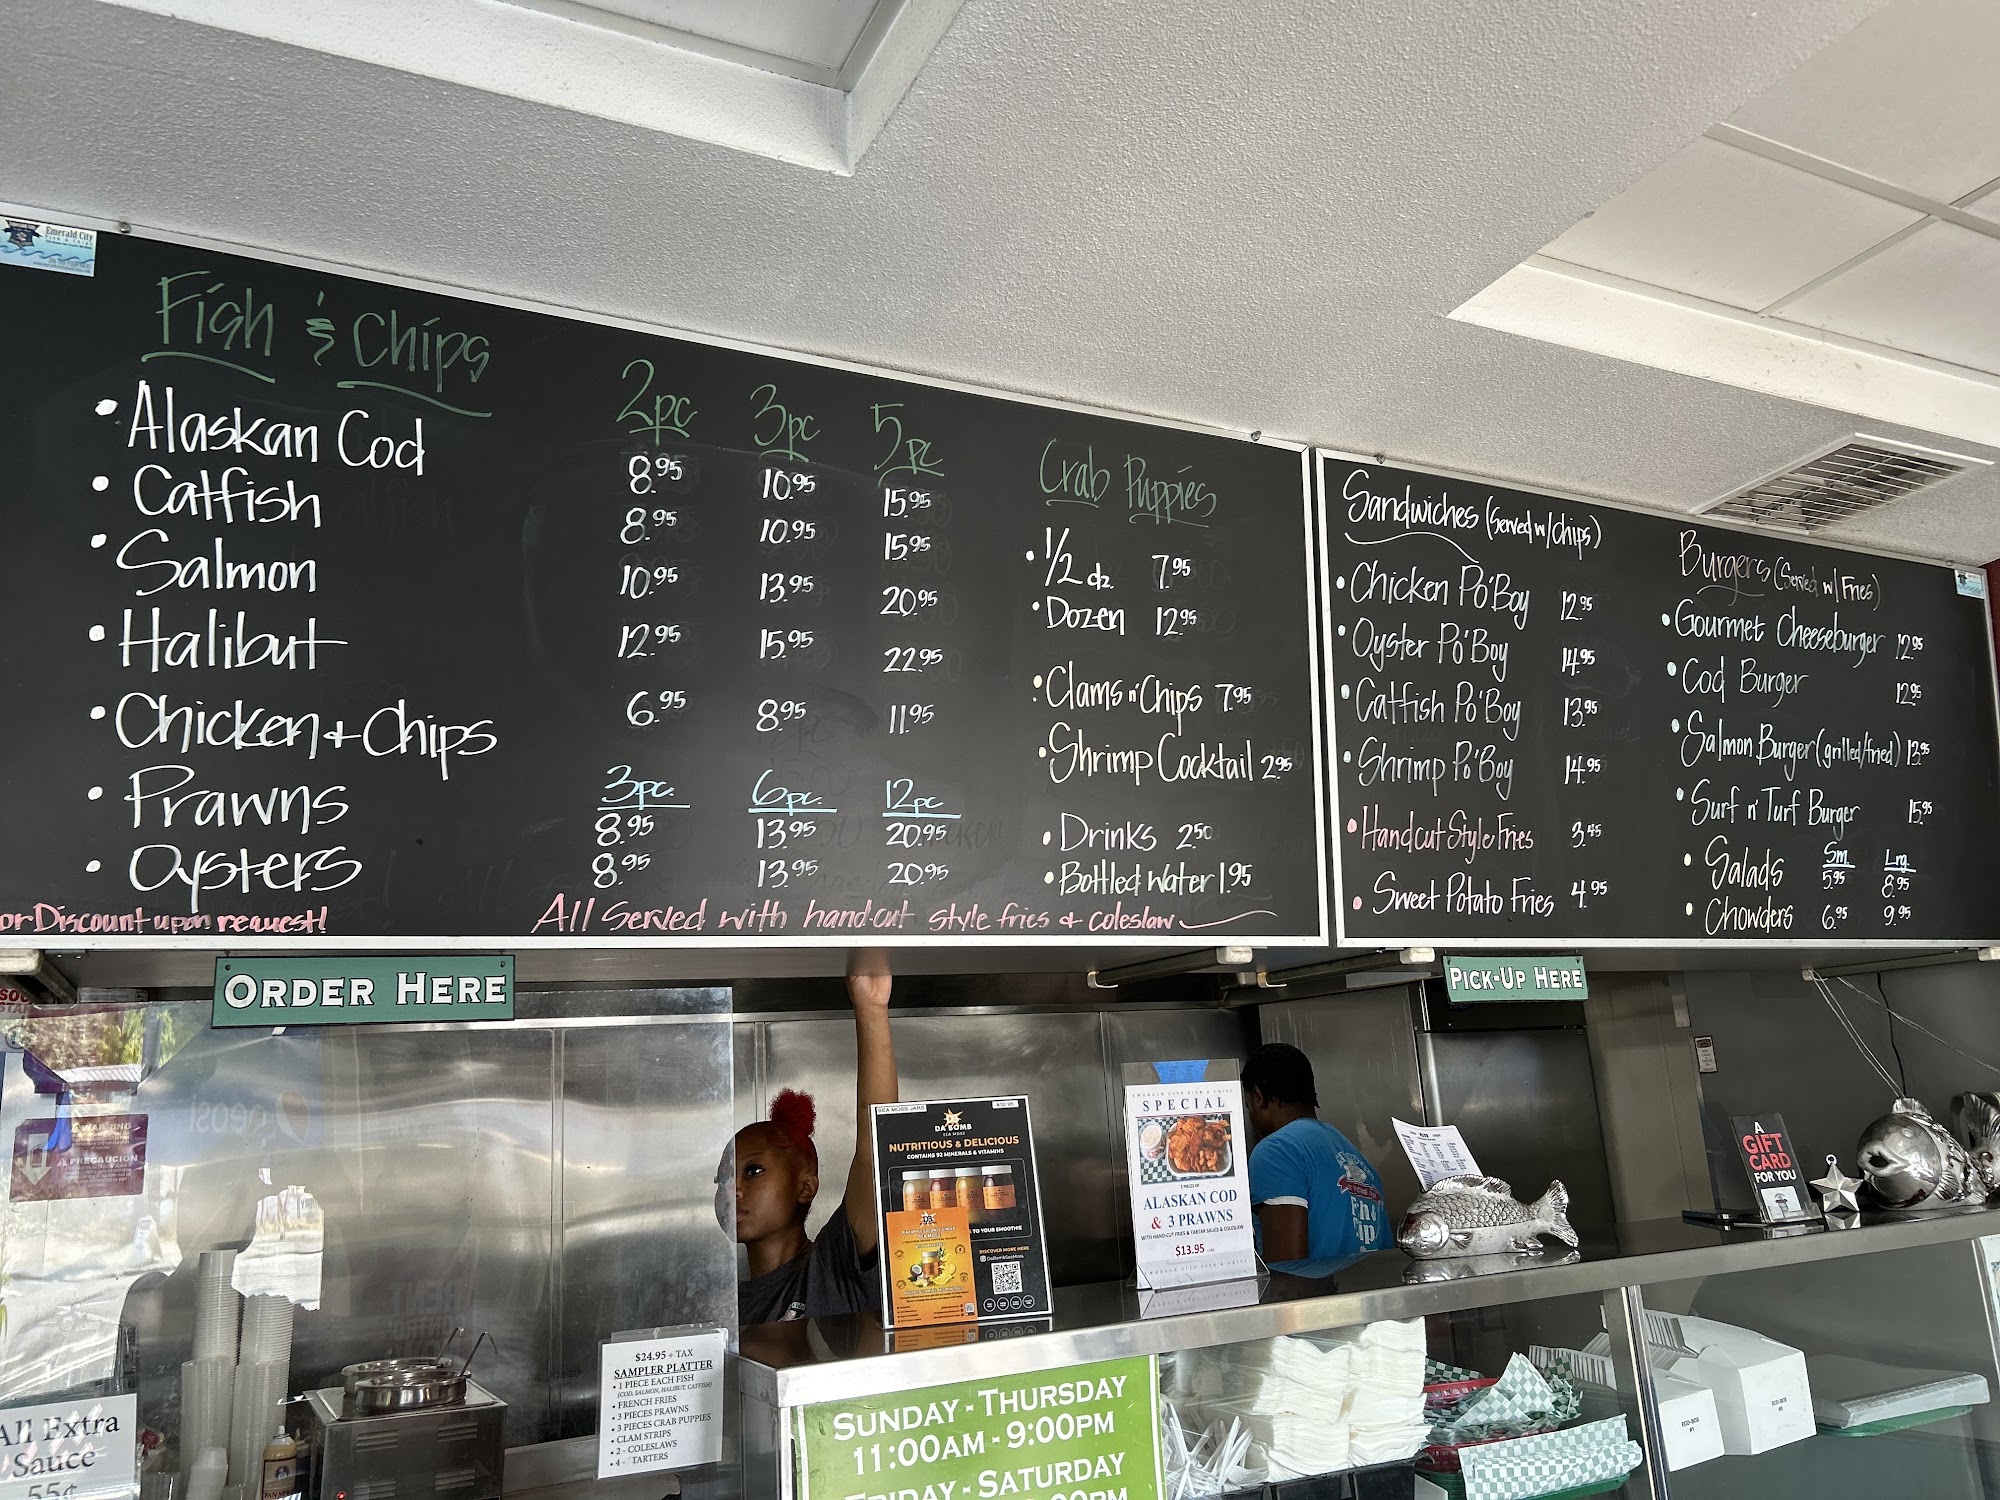 Emerald City
Fish & Chips
Fish & Chips
2pc 3pc 5pc
• Alaskan Cod 8.95 10.95 15.95
• Catfish 8.95 10.95 15.95
• Salmon 10.95 13.95 20.95
• Halibut 12.95 15.95 22.95
• Chicken + Chips 6.95 8.95 11.95
3pc. 6pc. 12pc
• Prawns 8.95 13.95 20.95
• Oysters 8.95 13.95 20.95
or Discount upon request!
All Served with hand-cut style fries & coleslaw
Crab Puppies
• 1/2 dz 7.95
• Dozen 12.95
• Clams n' Chips 7.95
• Shrimp Cocktail 2.95
• Drinks 2.50
• Bottled Water 1.95
Sandwiches (Served w/ chips)
• Chicken Po'Boy 12.95
• Oyster Po'Boy 14.95
• Catfish Po'Boy 13.95
• Shrimp Po'Boy 14.95
• Handcut Style Fries 3.45
• Sweet Potato Fries 4.95
Burgers (Served w/ Fries)
• Gourmet Cheeseburger 12.95
• Cod Burger 12.95
• Salmon Burger (grilled/fried) 13.95
• Surf n' Turf Burger 15.95
Sm. Lrg.
• Salads 5.95 8.95
• Chowders 6.95 9.95
ORDER HERE
PICK-UP HERE
WARNING
PRECAUCION
pepsi
SEA MOSS JARS
DA BOMB
SEA MOSS
NUTRITIOUS & DELICIOUS
CONTAINS 92 MINERALS & VITAMINS
TO YOUR SMOOTHIE
DISCOVER MORE HERE
SPECIAL
ALASKAN COD
& 3 PRAWNS
WITH HAND-CUT FRIES & TARTAR SAUCE & COLESLAW
$13.95
A
GIFT
CARD
FOR YOU
$24.95 + TAX
SAMPLER PLATTER
• 1 PIECE EACH FISH
(COD, SALMON, HALIBUT, CATFISH)
• FRENCH FRIES
• 3 PIECES PRAWNS
• 3 PIECES CRAB PUPPIES
• CLAM STRIPS
• 2 - COLESLAWS
• 4 - TARTERS
All Extra
Sauce
55¢
SUNDAY - THURSDAY
11:00AM - 9:00PM
FRIDAY - SATURDAY
ECO-BOX
ECO-BOX